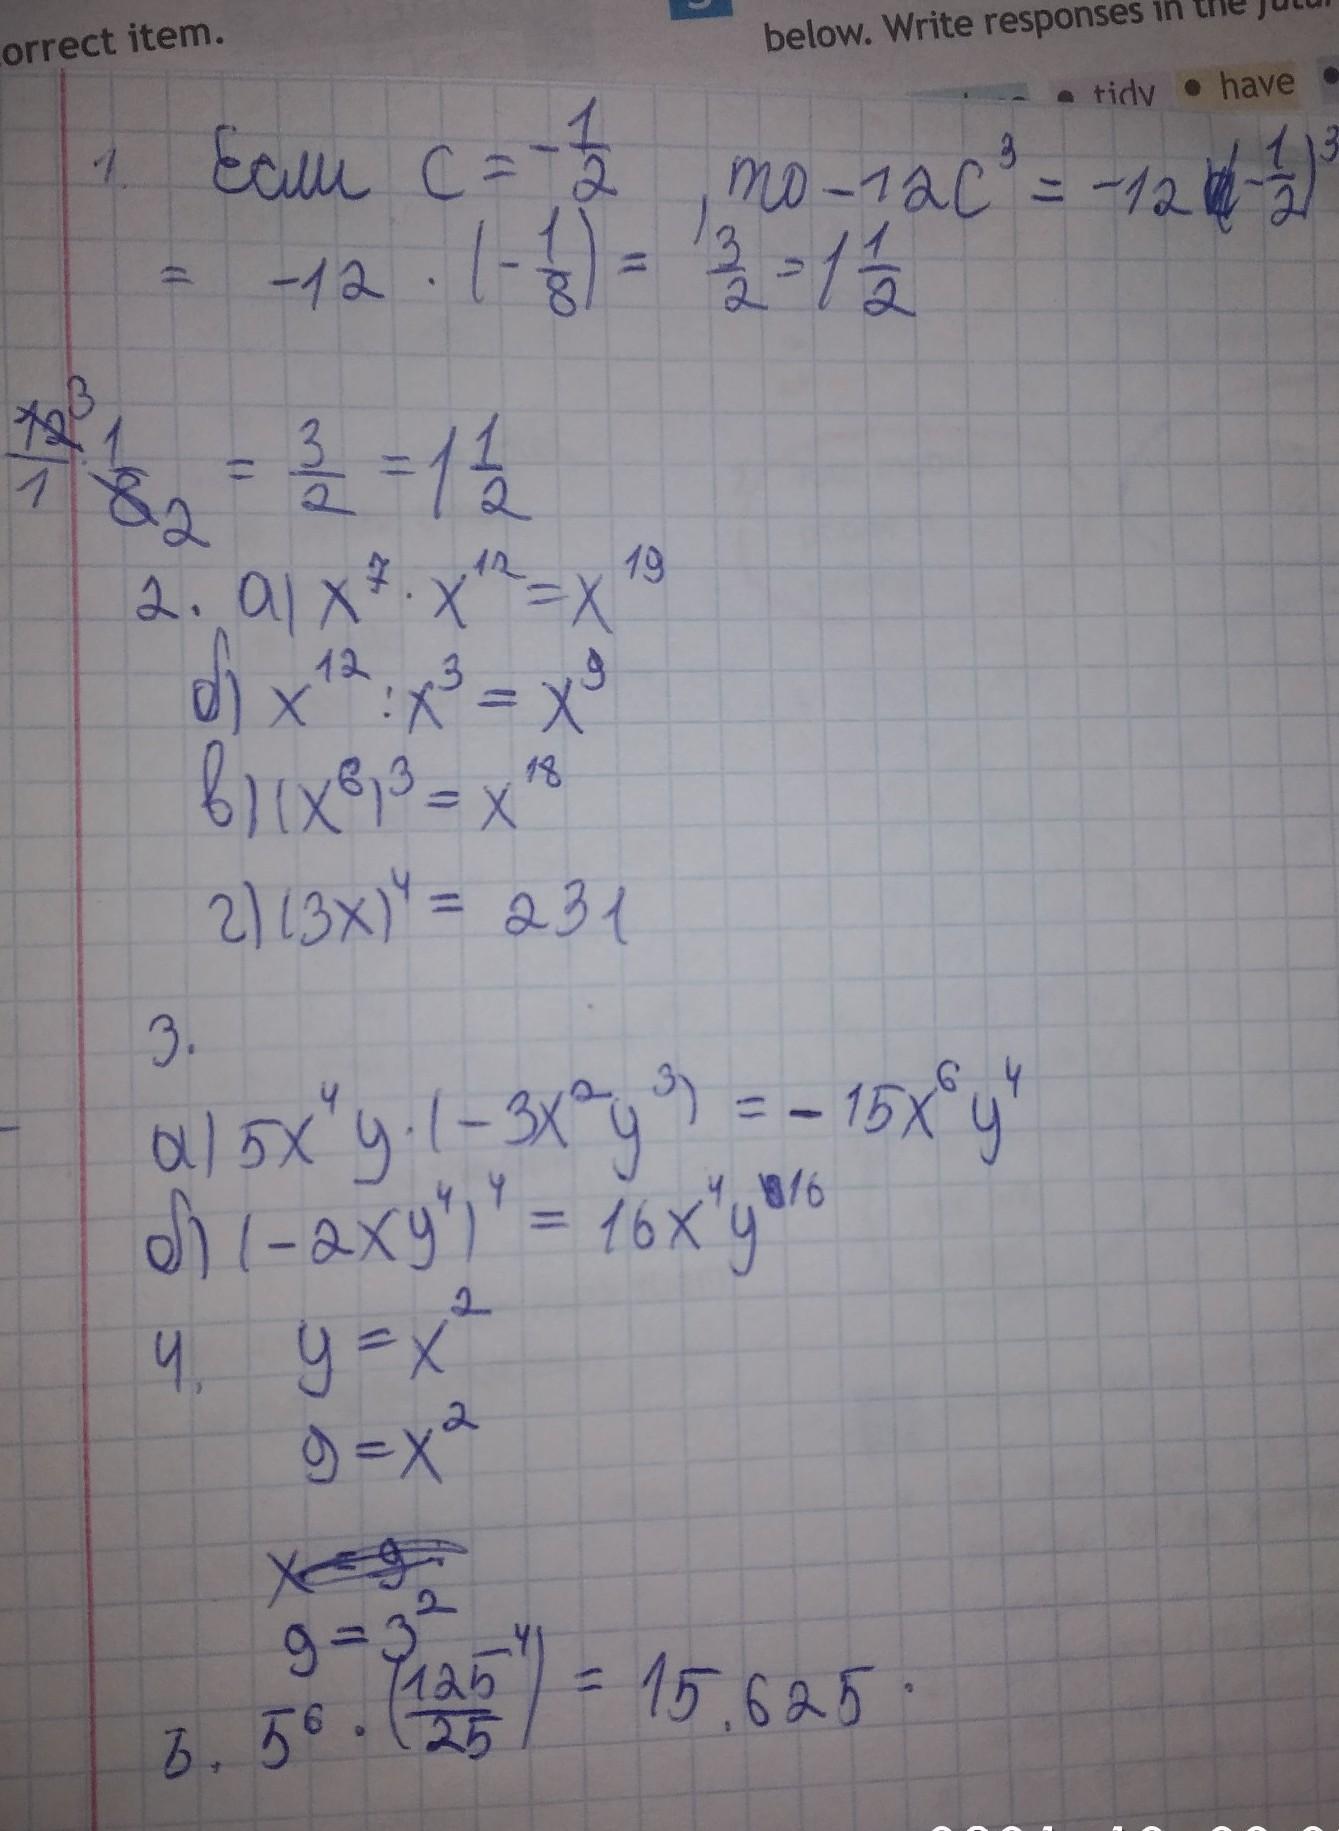 orrect item.
below. Write responses in the
• tidy • have •
1. Если c = -1/2, то -12c³ = -12(-1/2)³
= -12 · (-1/8) = 3/2 = 1 1/2
12/1 3 · 1/8 2 = 3/2 = 1 1/2
2. а) x⁷ · x¹² = x¹⁹
б) x¹² : x³ = x⁹
в) (x⁶)³ = x¹⁸
г) (3x)⁴ = 231
3.
а) 5x⁴y · (-3x²y³) = -15x⁶y⁴
б) (-2xy⁴)⁴ = 16x⁴y¹⁶
4. y = x²
9 = x²
x = 9
9 = 3²
5. 5⁶ · (125⁻⁴/25) = 15.625 ·